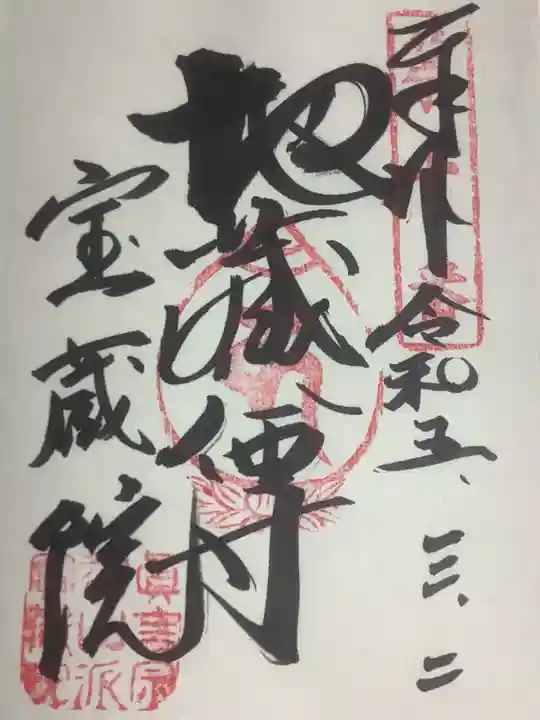 奉拝
令和五、三、二
地蔵尊
宝蔵院